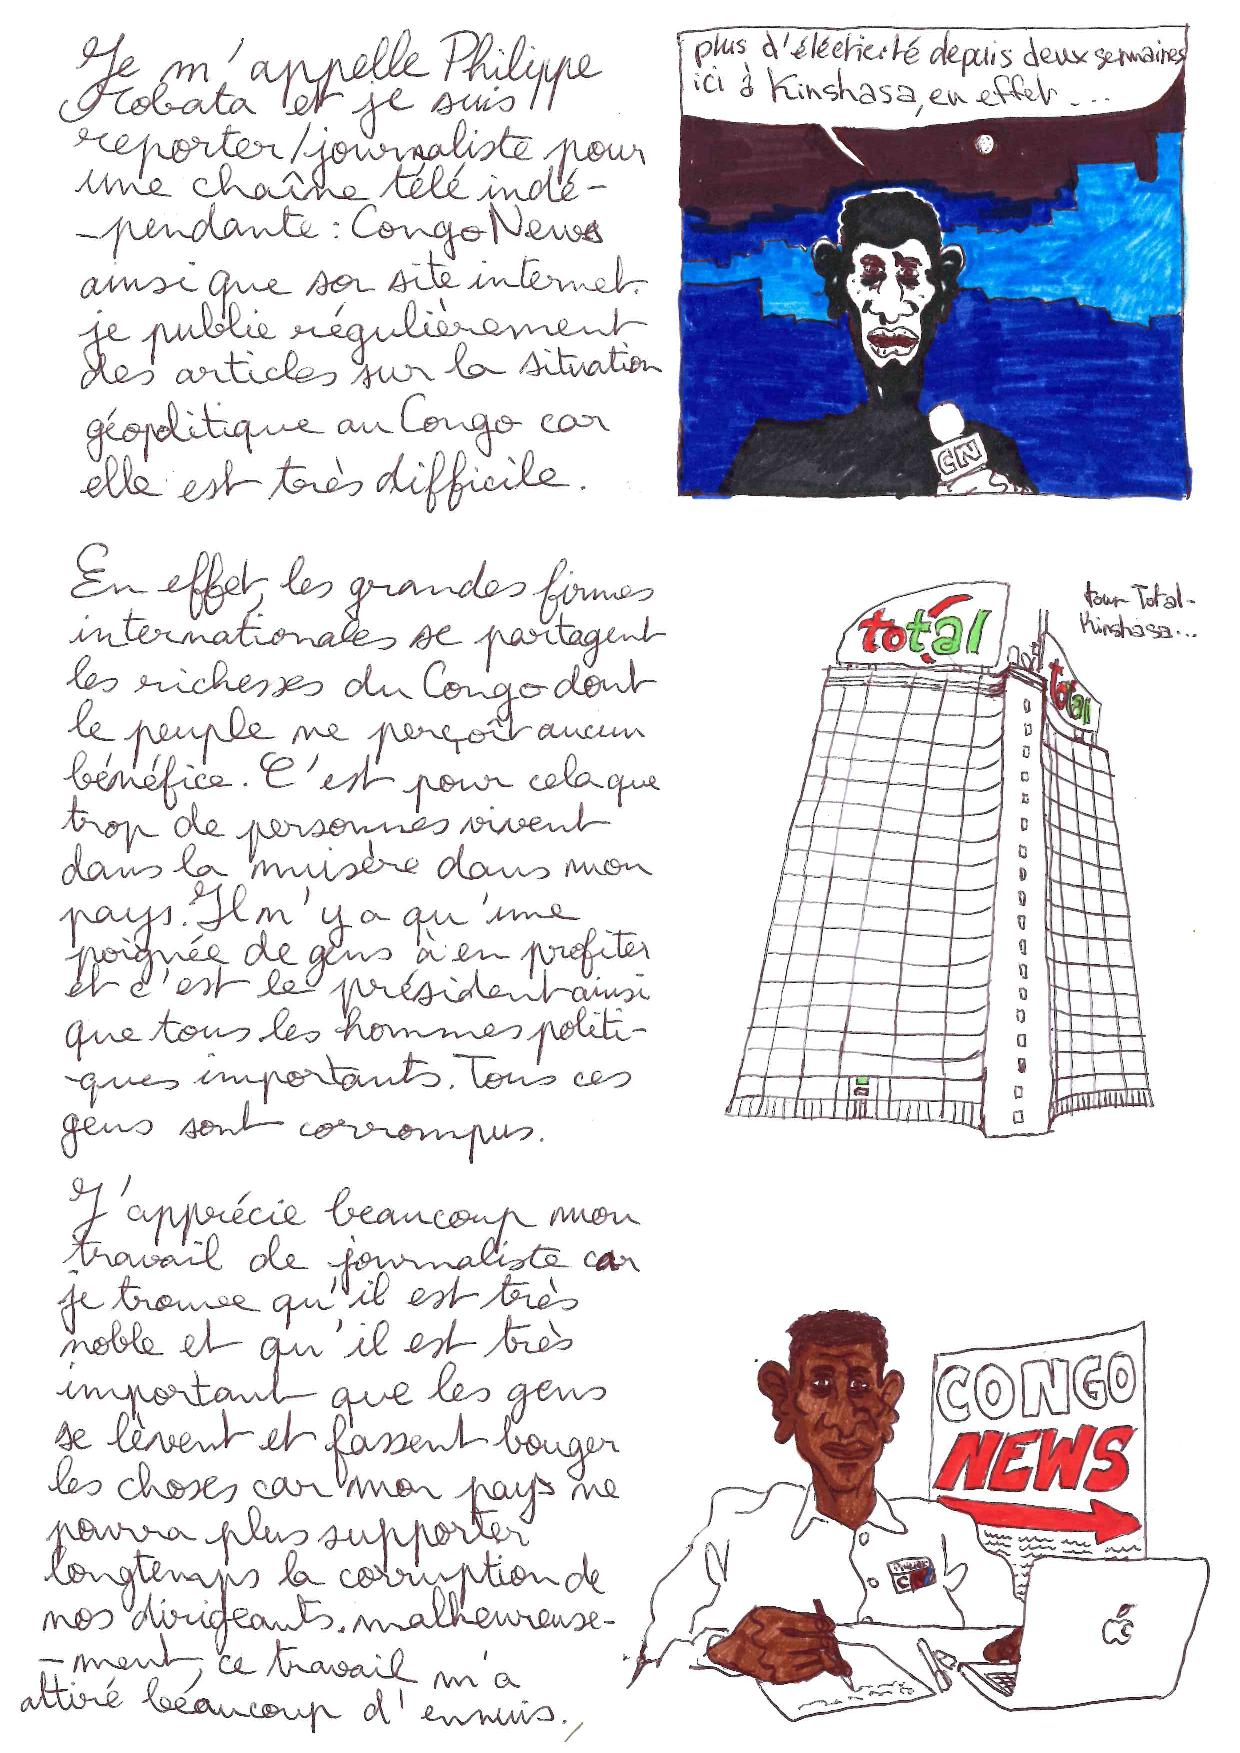 Je m'appelle Philippe
Kobata et je suis
reporter/journaliste pour
une chaîne télé indé-
-pendante : Congo News
ainsi que son site internet.
je publie régulièrement
des articles sur la situation
géopolitique au Congo car
elle est très difficile.
plus d'éléctricité depuis deux semaines
ici à Kinshasa, en effet ...
CN
En effet, les grandes firmes
internationales se partagent
les richesses du Congo dont
le peuple ne perçoit aucun
bénéfice. C'est pour cela que
trop de personnes vivent
dans la misère dans mon
pays. Il n'y a qu'une
poignée de gens à en profiter
et c'est le président ainsi
que tous les hommes politi-
-ques importants. Tous ces
gens sont corrompus.
total
total
tour Total-
Kinshasa...
J'apprécie beaucoup mon
travail de journaliste car
je trouve qu'il est très
noble et qu'il est très
important que les gens
se lèvent et fassent bouger
les choses car mon pays ne
pourra plus supporter
longtemps la corruption de
nos dirigeants. malheureuse-
-ment, ce travail m'a
attiré beaucoup d'ennuis.
CONGO
NEWS